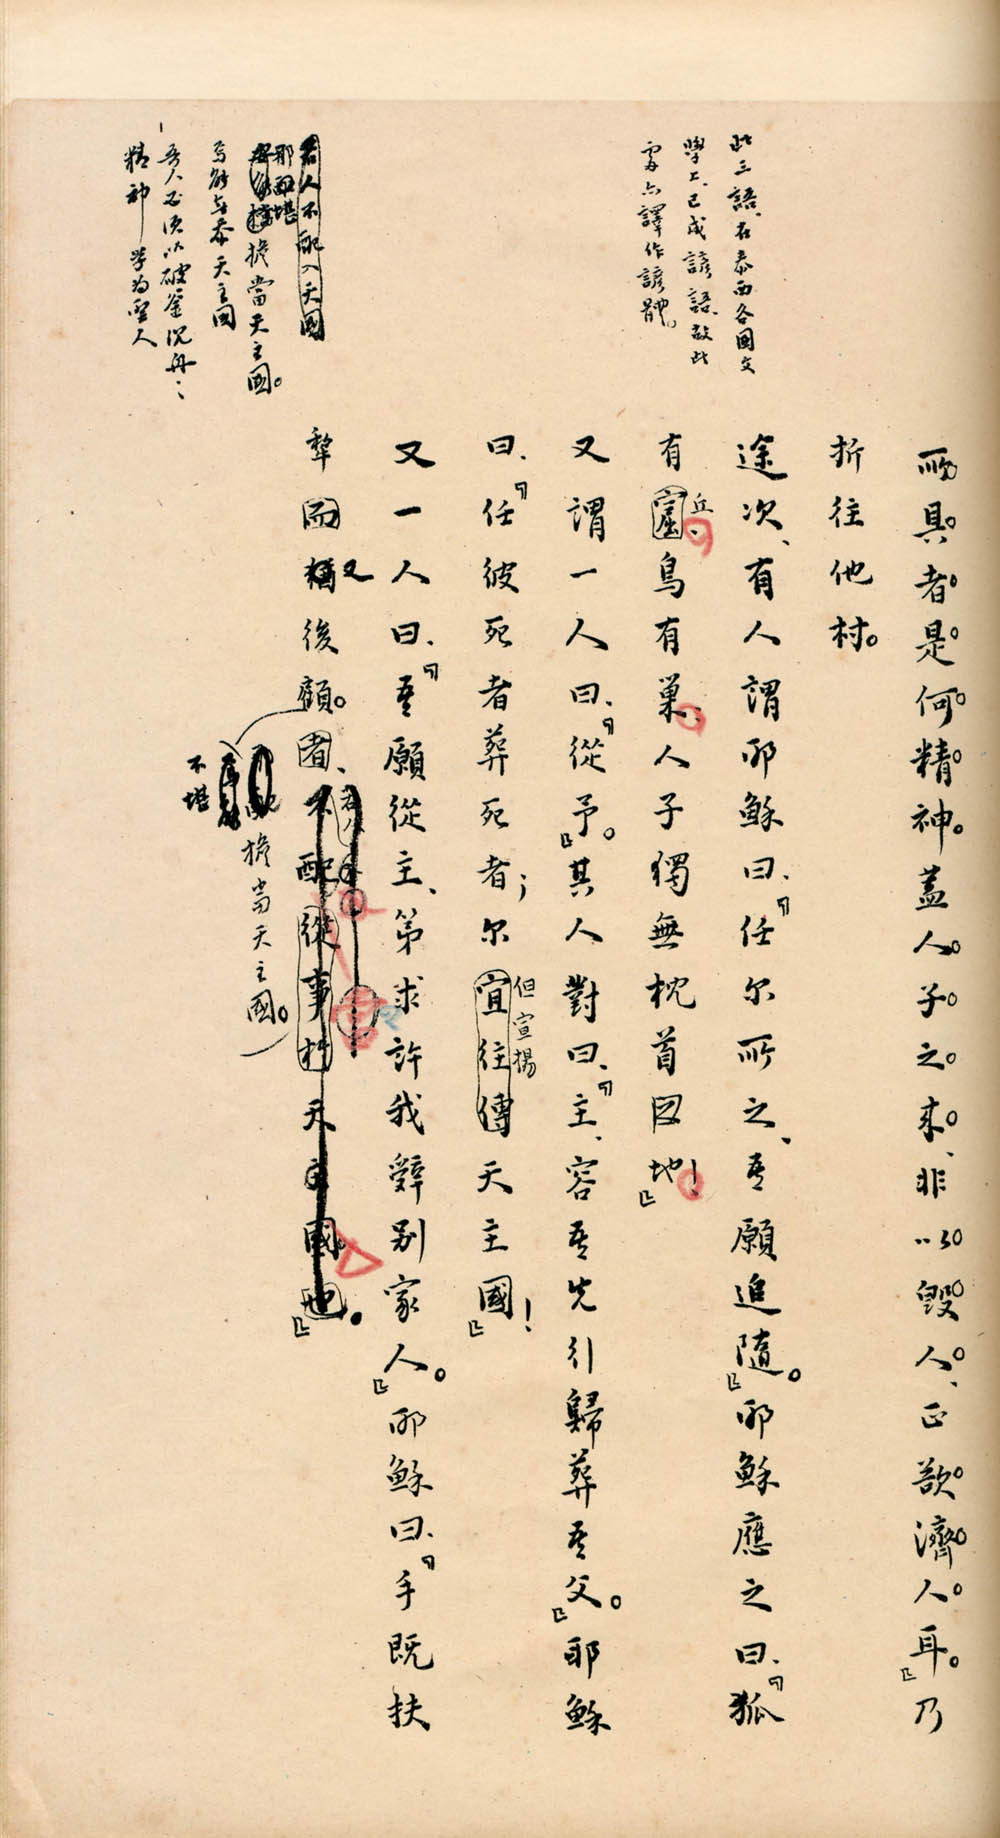 所具者是何精神。蓋人子之來、非以毀人、正欲濟人耳。』乃
折往他村。
途次、有人謂耶穌曰、『任尔所之、吾願追隨。』耶穌應之曰、『狐
有窟、鳥有巢、人子獨無枕首之地！』
丘
又謂一人曰、『從予。』其人對曰、『主、容吾先引歸葬吾父。』耶穌
曰、『任彼死者葬死者；尔宜往傳天主國！』
但宣揚
又一人曰、『吾願從主、第求許我辭別家人。』耶穌曰、『手既扶
犂而猶後顧。者、不配從事於天主國也。』
又
不堪
擔當天主國。
此三語、在泰西各國文
學上、已成諺語、故此
處亦譯作諺體。
若人不配入天國
那堪
擔當天主國。
焉能与于天主国
吾人必須以破釜沉舟之
精神学为聖人